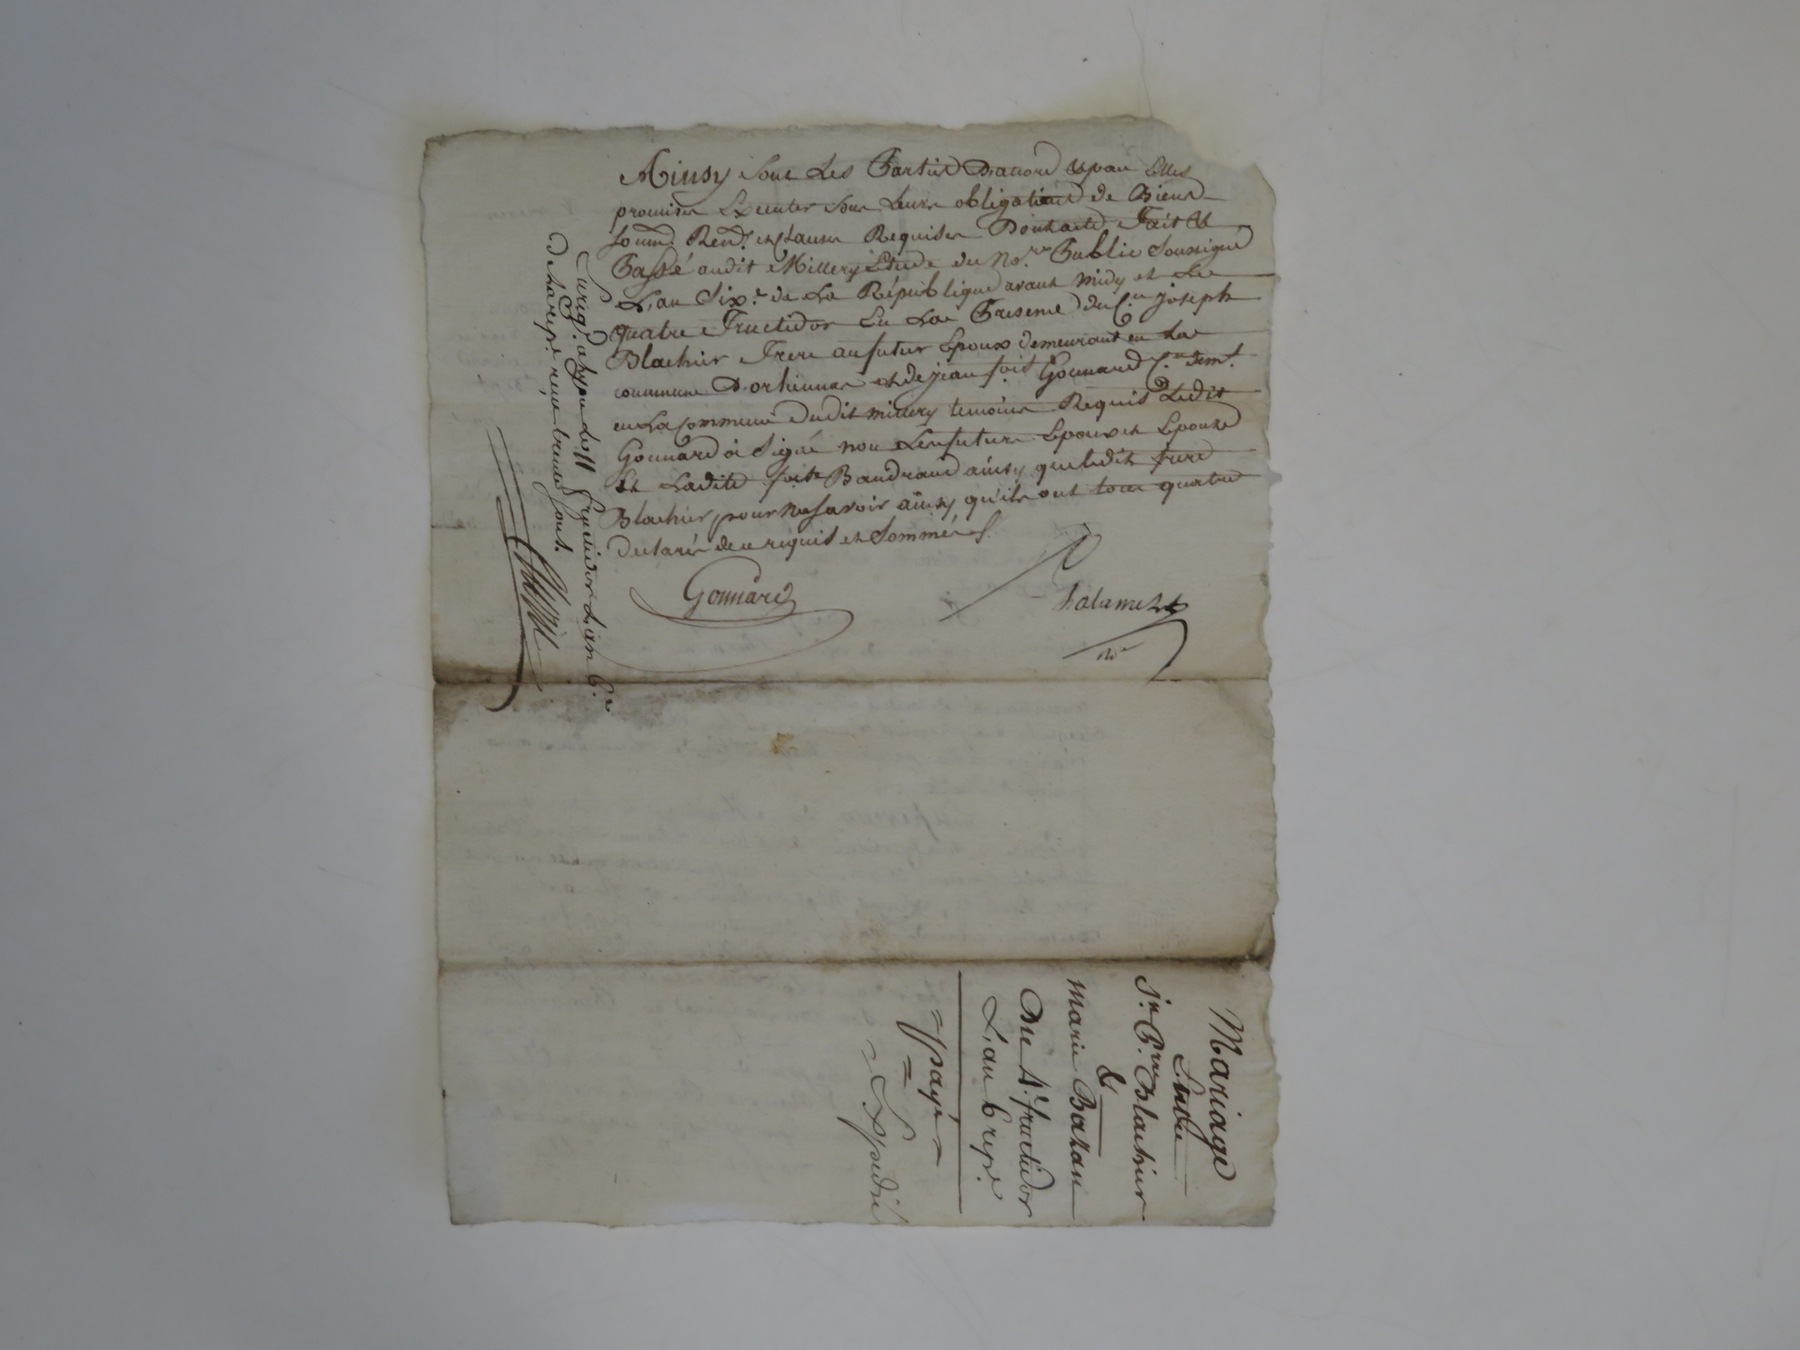 Ainsy sont Les Parties D'accord & par Elles
promises Executer sous Leurs obligations de Biens
soum? Ren? et clauses Requises Dont acte Fait &
Passé audit Millery Etude du No.re Public soussigné
L'an Six.e de La République avant midy et Le
quatre Fructidor En La Presence du C.en joseph
Blachier Frere au futur Epoux demeurant en La
commune D'orlienas et de jean Gonnard C.en dem.t
en La commune dudit millery temoins Requis Ledit
Gonnard a signé non Les futurs Epoux et Epouse
et Ladite Baudrand ainsy que ledit frere
Blachier, pour ne savoir ainsy qu'ils ont tous quatre
declarés de ce requis et sommés
Gonnard
Palamet
n.re
Enreg. a Le 11 fructidor L'an 6.e
de La rep. reçu trente sous.
Mariage
Entre
j.n P.rre Blachier
&
marie Bazan
Du 4.e fructidor
L'an 6 rep.e
= payé =
= Expedié